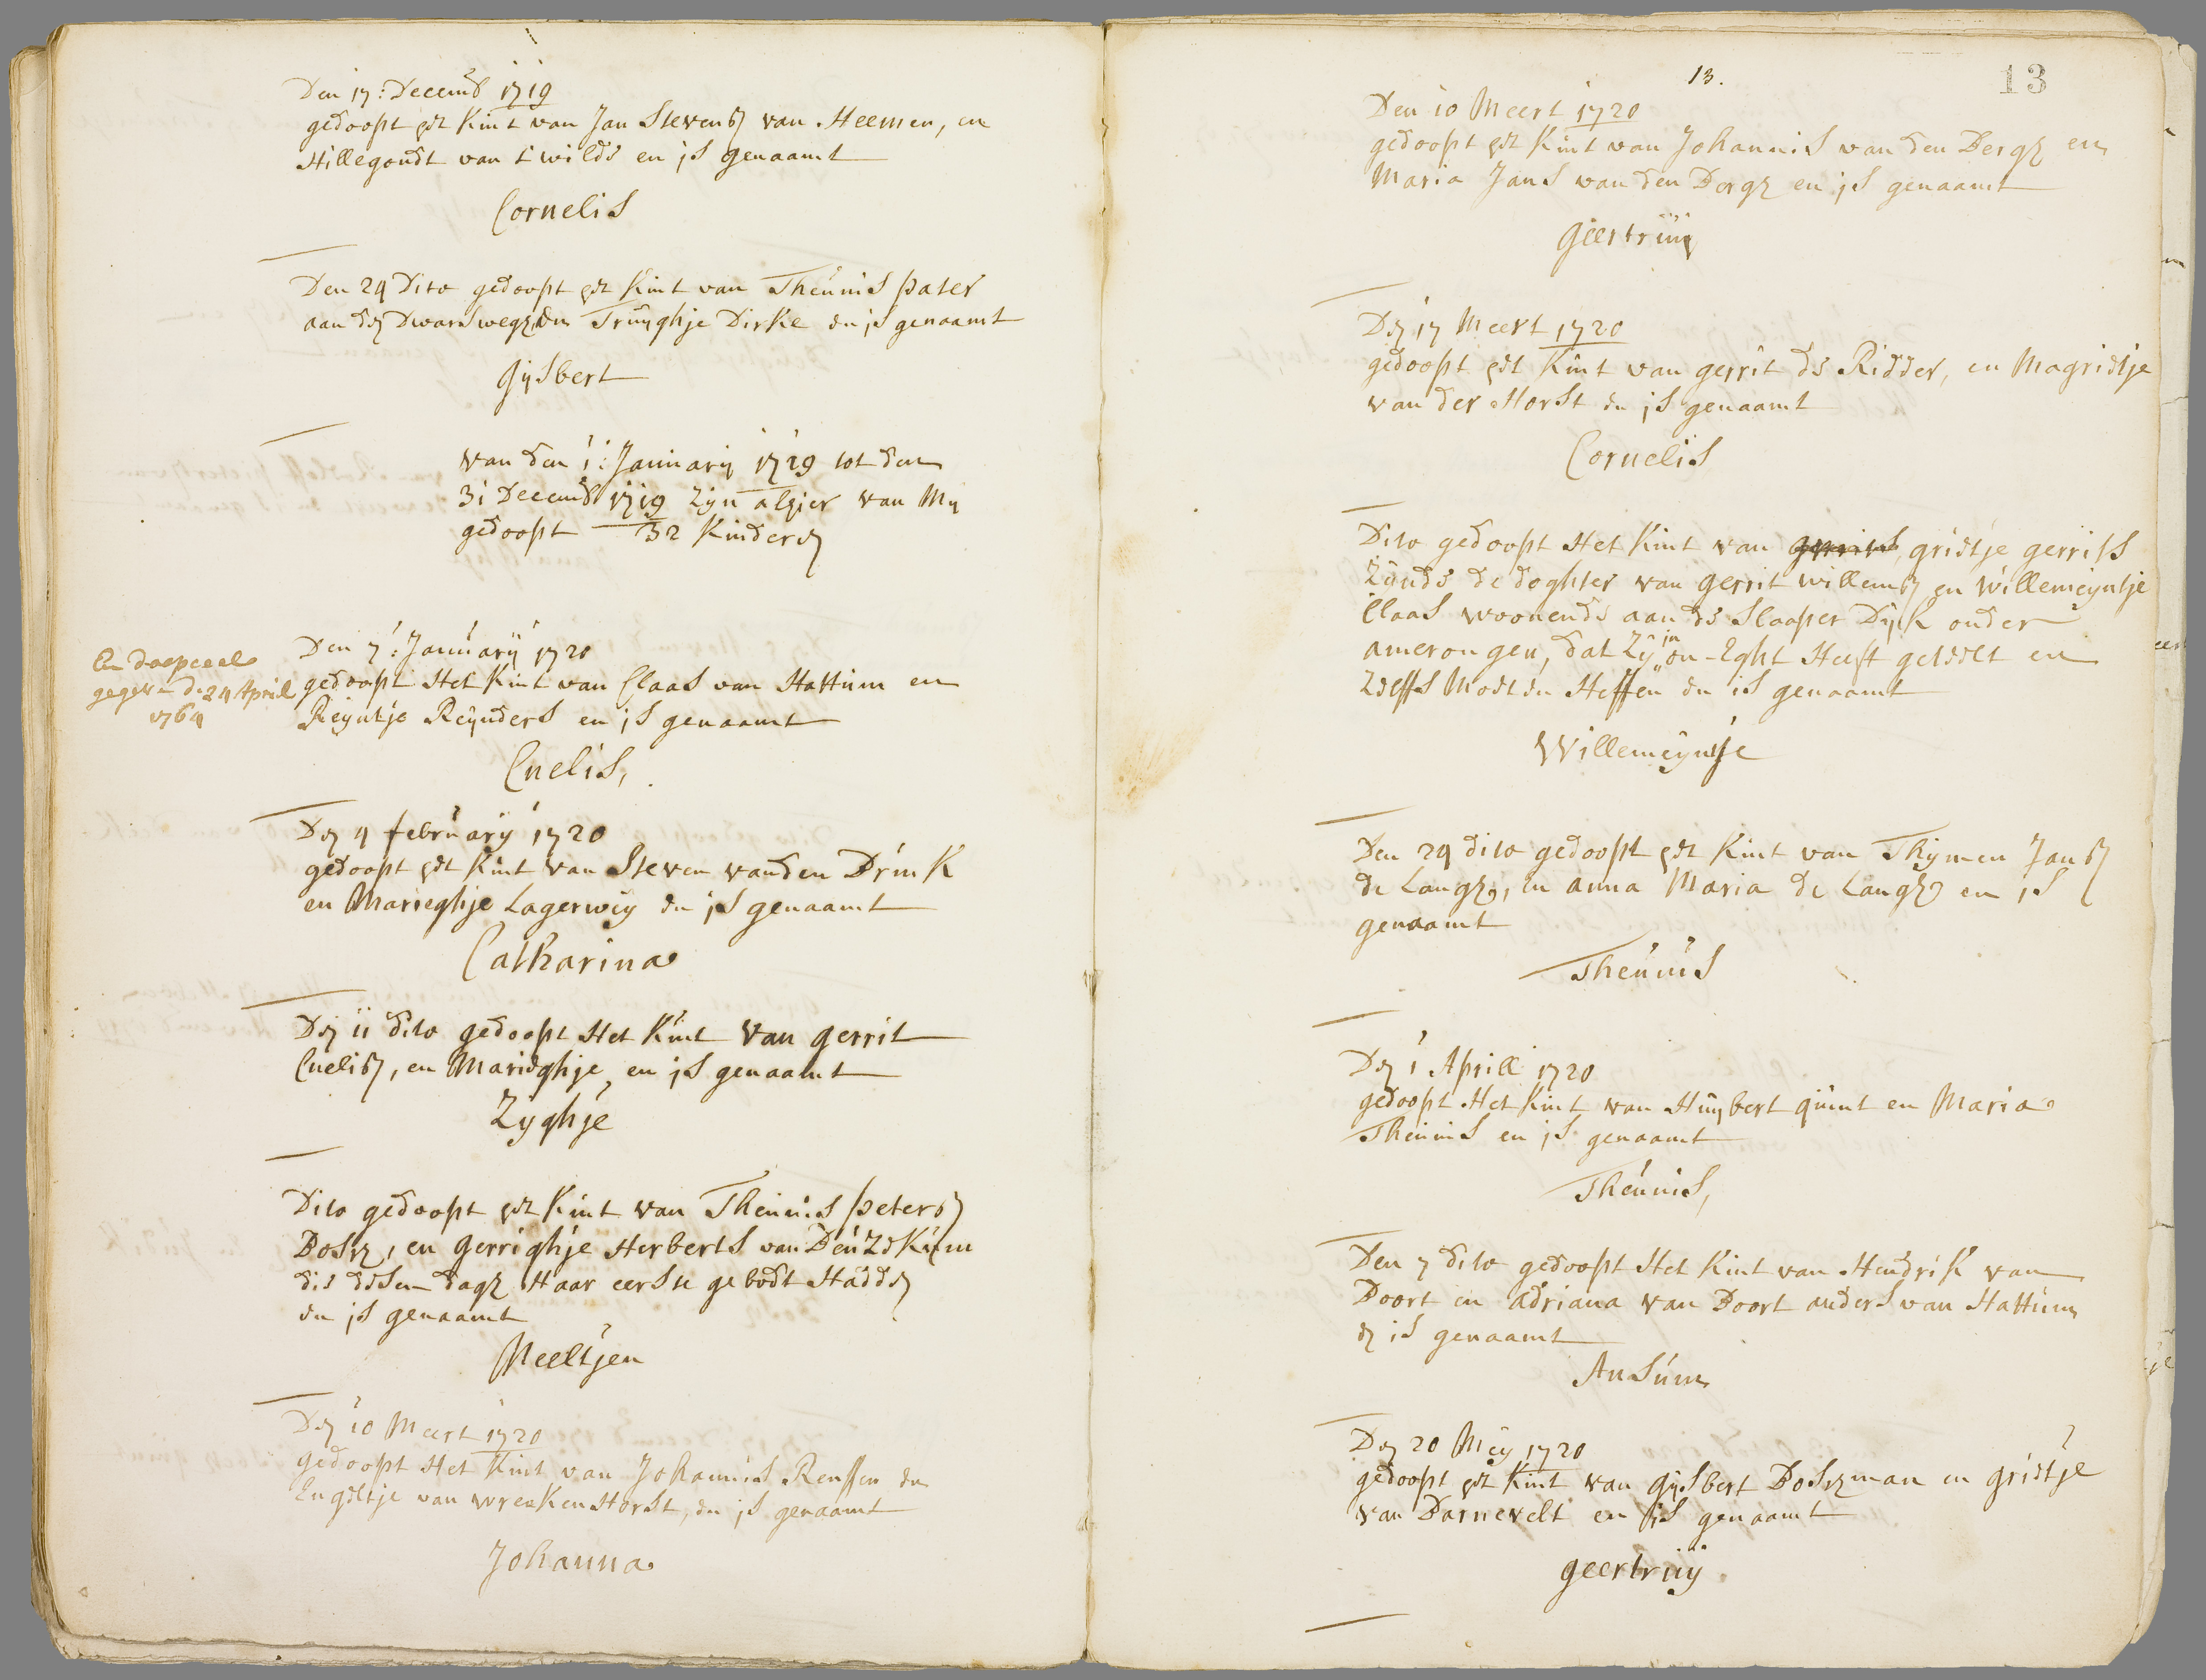 Den 17: Decemb 1719
gedoopt het Kint van Jan Stevens van Heemen, en
Hillegondt van t wilde en is genaamt
Cornelis
Den 24 Dito gedoopt het Kint van Theunis pater
aan de Dwarswegh, en Truyghje Dirke en is genaamt
Gysbert
van den 1: January 1719 tot den
31 Decemb 1719 Zyn alhier van My
gedoopt 32 Kinderen
En doopceel
gegeven de 24 April
1764
Den 7: January 1720
gedoopt Het Kint van Claas van Hattum en
Reyntje Reynders en is genaamt
Cnelis,
Den 4 february 1720
gedoopt het Kint van Steven vanden Brink
en Marieghje Lagerwey en is genaamt
Catharina
Den 11 dito gedoopt Het Kint van gerrit
Cnelis, en Marieghje en is genaamt
Zyghje
Dito gedoopt het Kint van Theunis peters
Bosch, en gerrighje Herberts van
die desen dagh Haar eerste gebodt Hadden
en is genaamt
Neeltjen
Den 10 Meert 1720
gedoopt Het Kint van Johannis Renssen en
Engeltje van wrekenHorst, en is genaamt
Johanna
13.
13
Den 10 Meert 1720
gedoopt het Kint van Johannis van den Bergh en
Maria Jans van den Bergh en is genaamt
geertruy
Den 17 Meert 1720
gedoopt het Kint van gerrit de Ridder, en Magrietje
van der Horst en is genaamt
Cornelis
Dito gedoopt Het Kint van grietje gerrits
Zynde de doghter van gerrit willems en Willemeyntje
Claas woonende aan de Slaaper Dyk onder
amerongen, dat Zy in on-Eght Heeft geteelt en
Zelfs Moeten Heffen en is genaamt
Willemeyntje
Den 24 dito gedoopt het Kint van Thymen Jans
de Lange, en anna Maria de Lange en is
genaamt
Theunis
Den 1 Aprill 1720
gedoopt Het Kint van Huybert quint en Maria
Theunis en is genaamt
Theunis,
Den 7 dito gedoopt Het Kint van Hendrik van
Doort en adriana van Doort anders van Hattum
en is genaamt
Ansum
Den 20 Mey 1720
gedoopt het Kint van Gysbert Boschman en grietje
van Barnevelt en is genaamt
geertruy